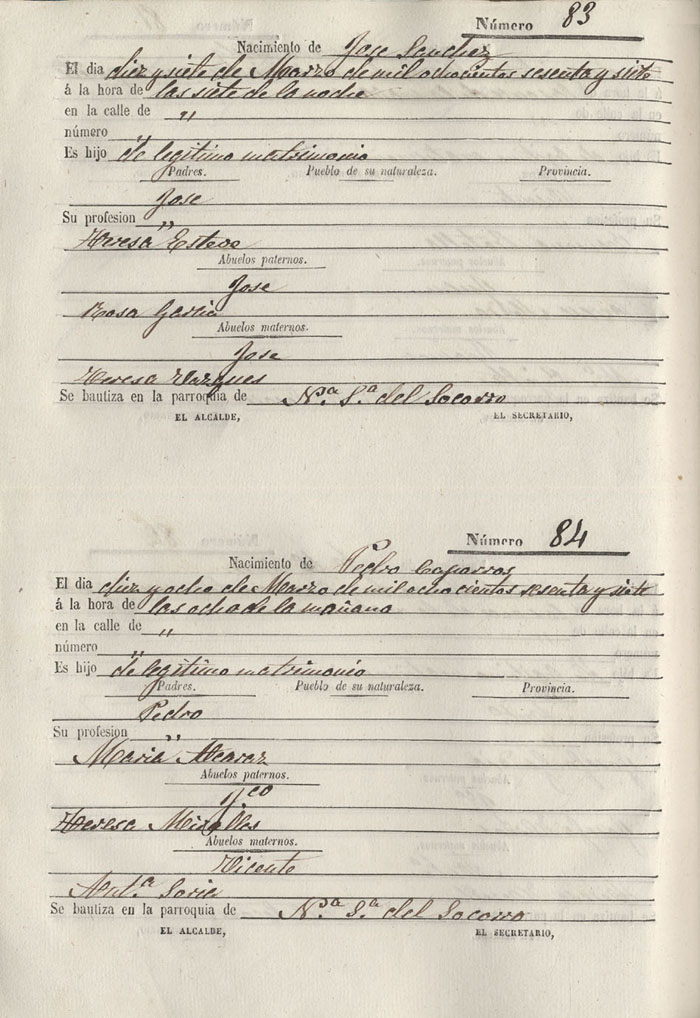 Número 83
Nacimiento de Jose Sanchez
El dia diez y siete de Marzo de mil ochocientos sesenta y siete
á la hora de las siete de la noche
en la calle de "
número "
Es hijo de legitimo matrimonio
Padres. Pueblo de su naturaleza. Provincia.
Jose
Su profesion "
Teresa Esteve
Abuelos paternos.
Jose
Rosa Garcia
Abuelos maternos.
Jose
Teresa Vazques
Se bautiza en la parroquia de Nª Sª del Socorro
EL ALCALDE, EL SECRETARIO,
Número 84
Nacimiento de Pedro Caparros
El dia diez y ocho de Marzo de mil ochocientos sesenta y siete
á la hora de las ocho de la mañana
en la calle de "
número "
Es hijo de legitimo matrimonio
Padres. Pueblo de su naturaleza. Provincia.
Pedro
Su profesion "
Maria Alcaraz
Abuelos paternos.
Fco
Teresa Miralles
Abuelos maternos.
Vicente
Antª Soria
Se bautiza en la parroquia de Nª Sª del Socorro
EL ALCALDE, EL SECRETARIO,